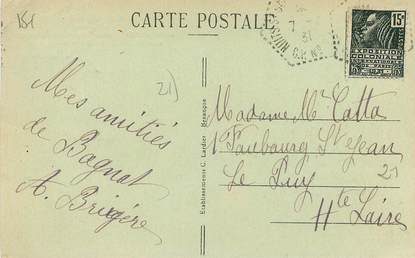 CARTE POSTALE
7 - 31
15c
EXPOSITION
COLONIALE
INTERNATIONALE
DE PARIS
1931
21)
Mes amitiés
de Bagnat
A. Brigère
Etablissements C. Lardier - Besançon
Madame Mce Catta
1 Faubourg St Jean
Le Puy
21
Hte Loire